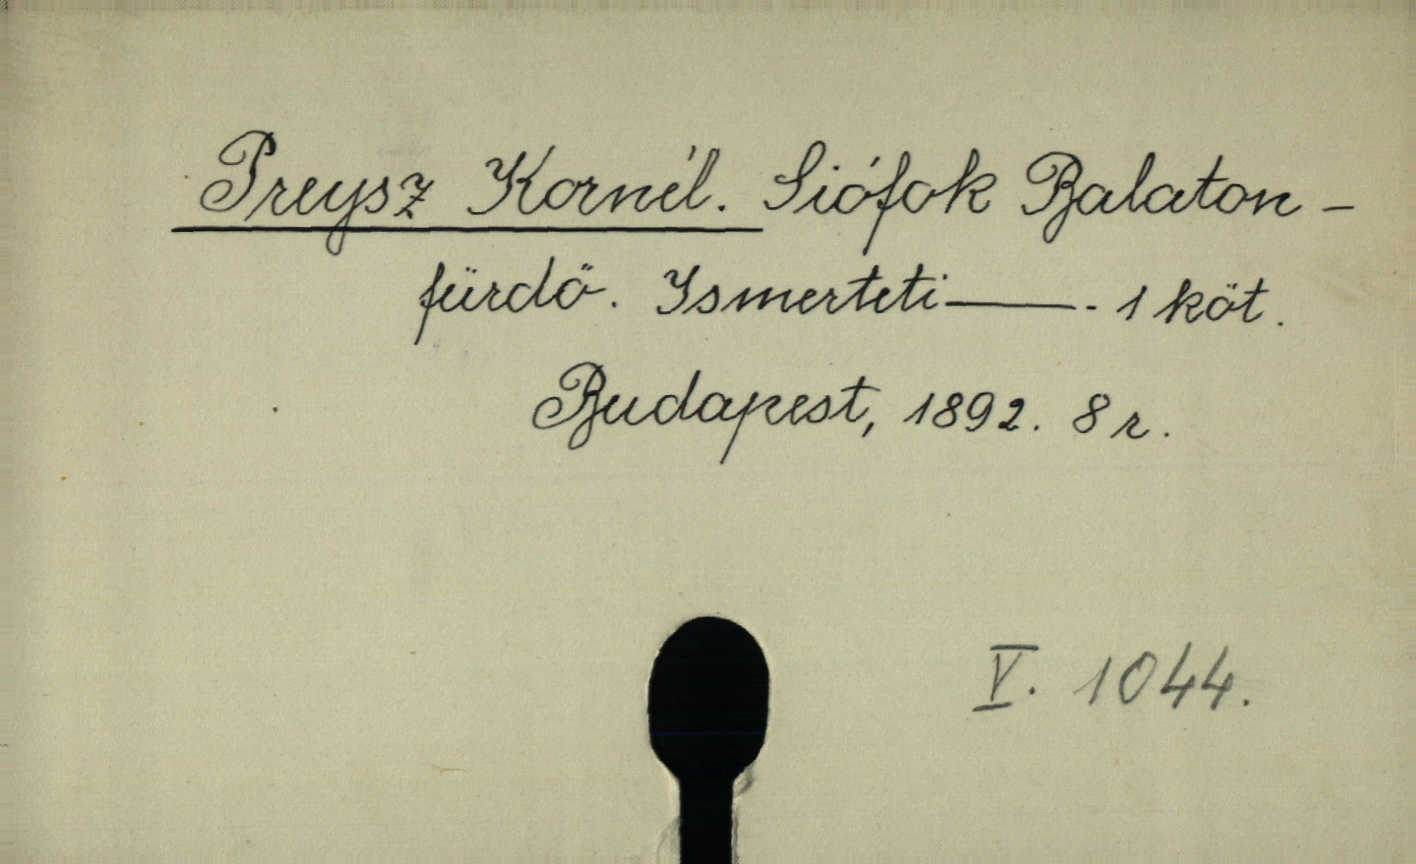 Preysz Kornél. Siófok Balaton-
fürdő. Ismerteti ——. 1 köt.
Budapest, 1892. 8 r.
V. 1044.